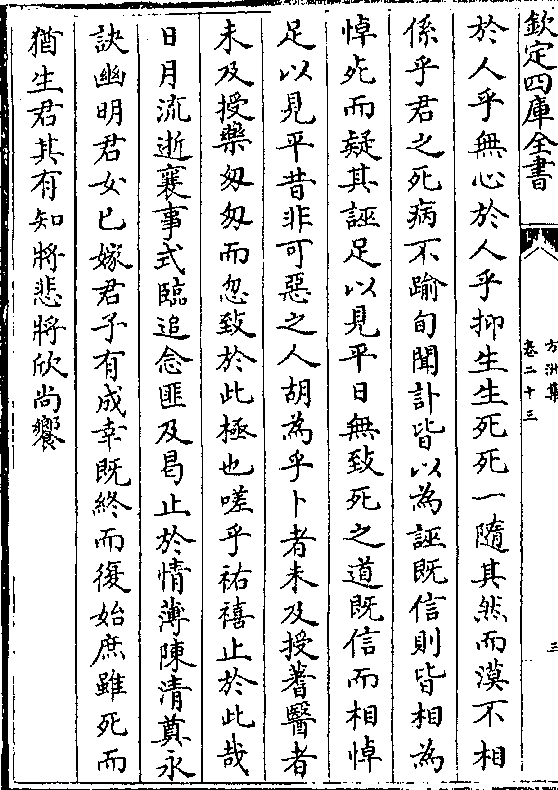 欽定四庫全書
方洲集
卷二十三
三
於人乎無心於人乎抑生生死死一隨其然而漠不相
係乎君之死病不踰旬聞訃皆以為誣既信則皆相為
悼死而疑其誣足以見平日無致死之道既信而相悼
足以見平昔非可惡之人胡為乎卜者未及授蓍醫者
未及授藥匆匆而忽致於此極也嗟乎祐禧止於此哉
日月流逝襄事式臨追念匪及曷止於情薄陳清奠永
訣幽明君女已嫁君子有成幸既終而復始庶雖死而
猶生君其有知將悲將欣尚饗